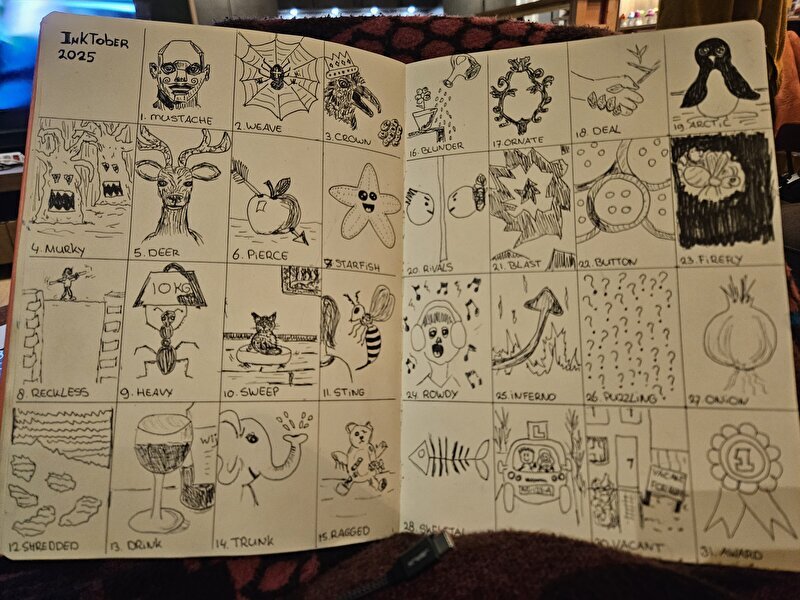 InkTober
2025
1. MUSTACHE
2. WEAVE
3. CROWN
4. MURKY
5. DEER
6. PIERCE
7 STARFISH
10 KG
8. RECKLESS
9. HEAVY
10. SWEEP
11. STING
12 SHREDDED
13. DRINK
14. TRUNK
15. RAGGED
16. BLUNDER
17. ORNATE
18. DEAL
19. ARCTIC
20. RIVALS
21. BLAST
22. BUTTON
23. FIREFLY
24. ROWDY
25. INFERNO
26. PUZZLING
27. ONION
L
7
VACANT
1
28. SKELETAL
30. VACANT
31. AWARD